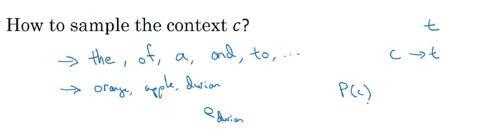 How to sample the context c?
t
→ the, of, a, and, to, ...
c → t
→ orange, apple, durian
P(c)
e durian